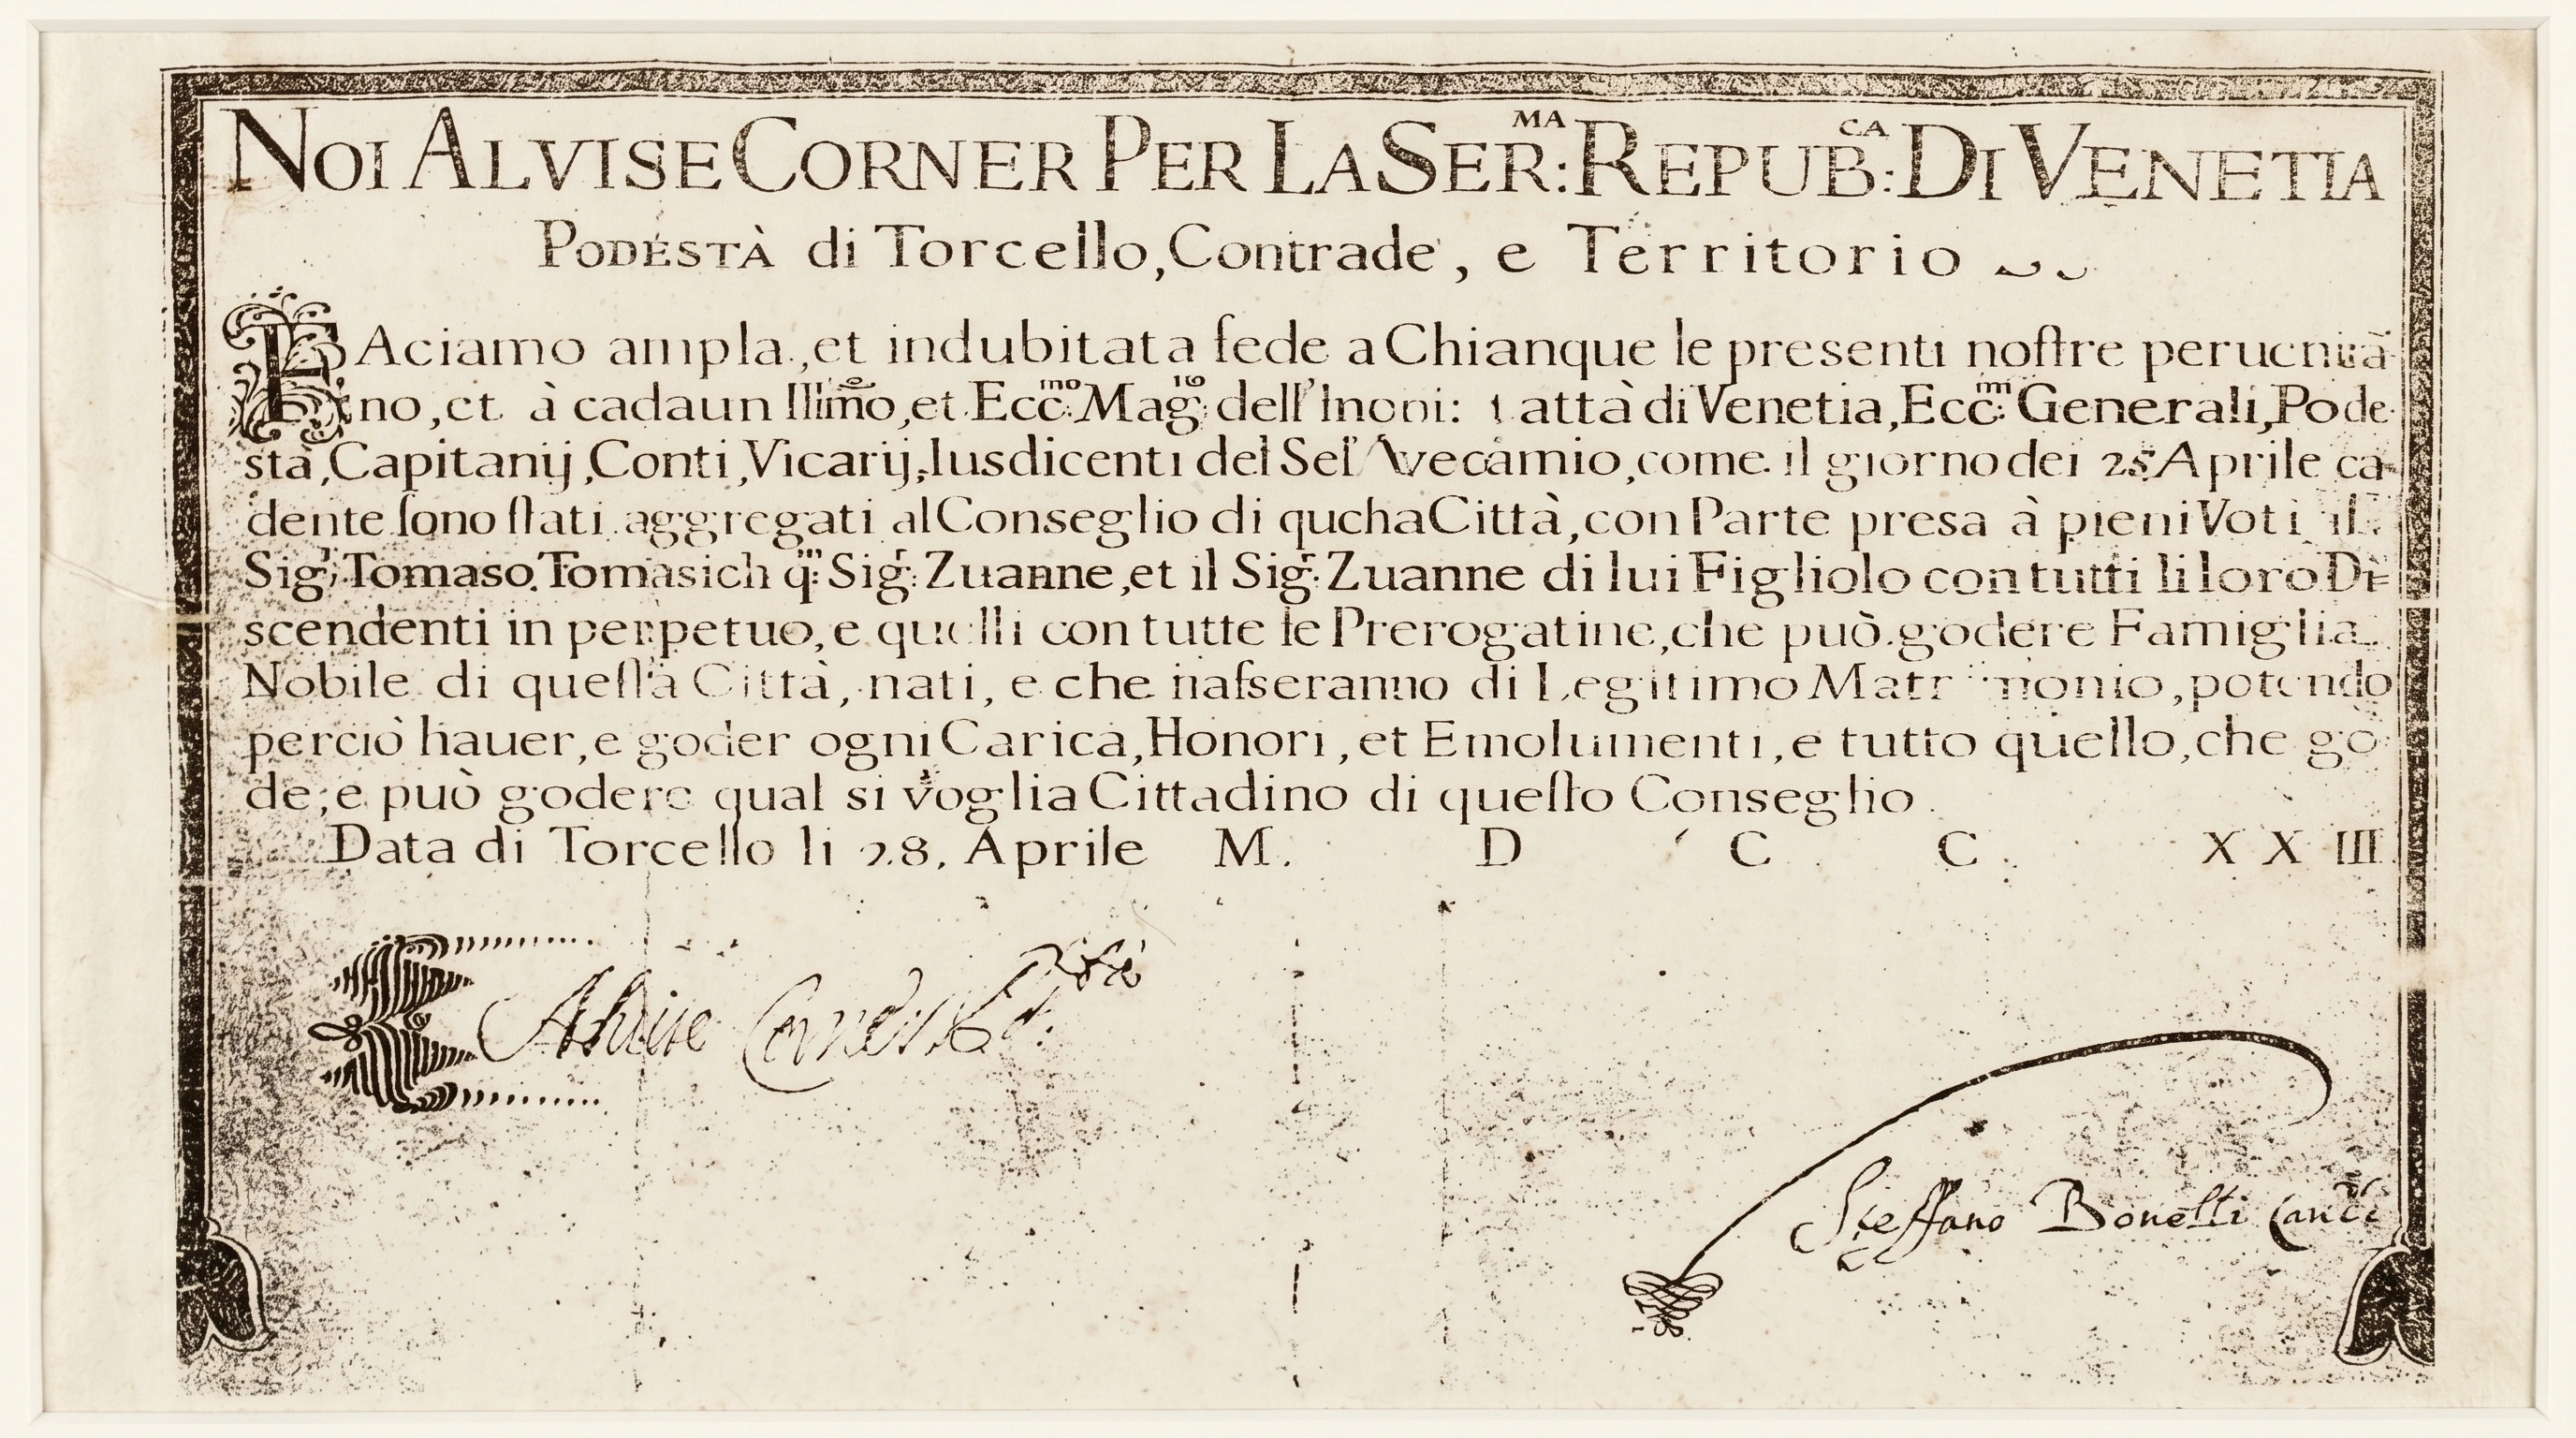 NOI ALVISE CORNER PER LA SER:MA REPUB:CA DI VENETIA
PODESTÀ di Torcello, Contrade, e Territorio
FAciamo ampla, et indubitata fede a Chianque le presenti noſtre
no, et à cadaun Illmo, et Ecc:mo Mag:to dell' di Venetia, Ecc:mi Generali, Pode
stà, Capitanij, Conti, Vicarij, Iusdicenti del come il giorno dei 25 Aprile ca-
dente ſono ſtati aggregati al Conseglio di qucha Città, con Parte presa à pieni Voti il
Sig:r Tomaso Tomasich q:m Sig:r Zuanne, et il Sig:r Zuanne di lui Figliolo con tutti li loro Di=
scendenti in perpetuo, e quelli con tutte le Prerogatine, che può godere Famiglia
Nobile di queſta Città, nati, e che naſseranno di Legitimo Matrimonio, potendo
perciò hauer, e goder ogni Carica, Honori, et Emolumenti, e tutto quello, che go
de, e può godere qual si voglia Cittadino di queſto Conseglio.
Data di Torcello li 28. Aprile M. D C C. X X III
Alvise Corner Pod:
Steffano Bonelli Canc